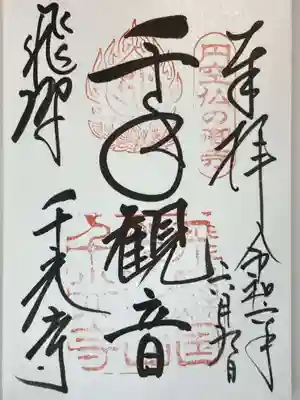 奉拝
令和二年
六月九日
円空仏の御寺
千手観音
飛騨
千光寺